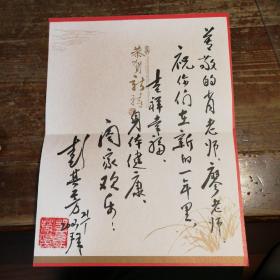 尊敬的肖老师、廖老师：
祝你们在新的一年里，
吉祥幸福，
恭贺新禧
身体健康，
阖家欢乐！
彭其芳